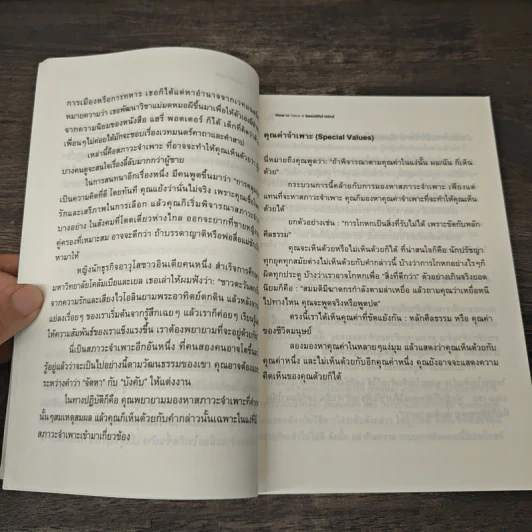 การเมืองหรือการทหาร เธอก็ได้แต่หาอำนาจจากเวทมนตร์
หมายความว่า เธอพัฒนาวิชาแม่มดหมอผีขึ้นมาเพื่อให้ตัวเองมี
จากความนิยมของหนังสือ แฮรี่ พอตเตอร์ ก็ได้ เด็กที่คิดว่าตัว
เพื่อนๆไม่ค่อยได้มักจะชอบเรื่องเวทมนตร์คาถาและคำสาป
เหล่านี้คือสภาวะจำเพาะ ที่อาจจะทำให้คุณเห็นด้วยว่า
บางคนดูจะสนใจเรื่องลี้ลับมากกว่าผู้ชาย
ในการสนทนาอีกเรื่องหนึ่ง มีคนพูดขึ้นมาว่า
เป็นความคิดที่ดี โดยทันที คุณแย้งว่านั่นไม่จริง เพราะคุณเชื่อใน
รักและเสรีภาพในการเลือก แล้วคุณก็เริ่มพิจารณาสภาวะจำ
บางอย่าง ในสังคมที่โดดเดี่ยวห่างไกล ออกจะยากที่ชายหญิง
คู่ครองที่เหมาะสม อาจจะดีกว่า ถ้าบรรดาญาติหรือพ่อสื่อแม่ชัก
หามาให้
หญิงนักธุรกิจอาวุโสชาวอินเดียคนหนึ่ง สำเร็จการศึกษา
มหาวิทยาลัยโคลัมเบียและเยล เธอเล่าให้ผมฟังว่า: "ชาวตะวันตก
จากความรักและเสียงไวโอลินยามพระอาทิตย์ตกดิน แล้วหลังจาก
แย่ลงเรื่อยๆ ของเราเริ่มต้นจากรู้สึกเฉยๆ แล้วเราก็ค่อยๆ เรียนรู้
ให้ความสัมพันธ์ของเราแข็งแรงขึ้น เราต้องพยายามที่จะอยู่ด้วยกัน
นี่เป็นสภาวะจำเพาะอีกอันหนึ่ง ที่คนสองคนอาจโตขึ้น
รู้อยู่แล้วว่าจะเป็นไปอย่างนี้ตามวัฒนธรรมของเขา คุณอาจต้อง
ระหว่างคำว่า "จัดหา" กับ "บังคับ" ให้แต่งงาน
ในทางปฏิบัติก็คือ คุณพยายามมองหาสภาวะจำเพาะที่คำ
นั้นๆสมเหตุสมผล แล้วคุณก็เห็นด้วยกับคำกล่าวนั้นเฉพาะในแง่ที่มี
สภาวะจำเพาะเข้ามาเกี่ยวข้อง
How to have a beautiful mind
คุณค่าจำเพาะ (Special Values)
นี่หมายถึงคุณพูดว่า: "ถ้าพิจารณาตามคุณค่าในแง่นั้น ผม/ฉัน ก็เห็น
ด้วย"
กระบวนการนี้คล้ายกับการมองหาสภาวะจำเพาะ เพียงแต่
แทนที่จะหาสภาวะจำเพาะ คุณก็มองหาคุณค่าจำเพาะที่จะทำให้คุณเห็น
ด้วยได้
ยกตัวอย่างเช่น : "การโกหกเป็นสิ่งที่รับไม่ได้ เพราะขัดกับหลัก
ศีลธรรม"
คุณจะเห็นด้วยหรือไม่เห็นด้วยก็ได้ ที่น่าสนใจก็คือ นักปรัชญา
ทุกยุคทุกสมัยต่างไม่เห็นด้วยกับคำกล่าวนี้ บ้างว่าการโกหกอย่างไรๆก็
ผิดทุกประตู บ้างว่าเราอาจโกหกเพื่อ "สิ่งที่ดีกว่า" ตัวอย่างเกินจริงยอด
นิยมก็คือ : "สมมติมีฆาตกรกำลังตามล่าเหยื่อ แล้วถามคุณว่าเหยื่อหนี
ไปทางไหน คุณจะพูดจริงหรือพูดปด"
ตรงนี้เราได้เห็นคุณค่าที่ขัดแย้งกัน : หลักศีลธรรม หรือ คุณค่า
ของชีวิตมนุษย์
ลองมองหาคุณค่าในหลายๆแง่มุม แล้วแสดงว่าคุณเห็นด้วยกับ
คุณค่าหนึ่ง และไม่เห็นด้วยกับอีกคุณค่าหนึ่ง คุณยังอาจจะแสดงความ
คิดเห็นของคุณด้วยก็ได้